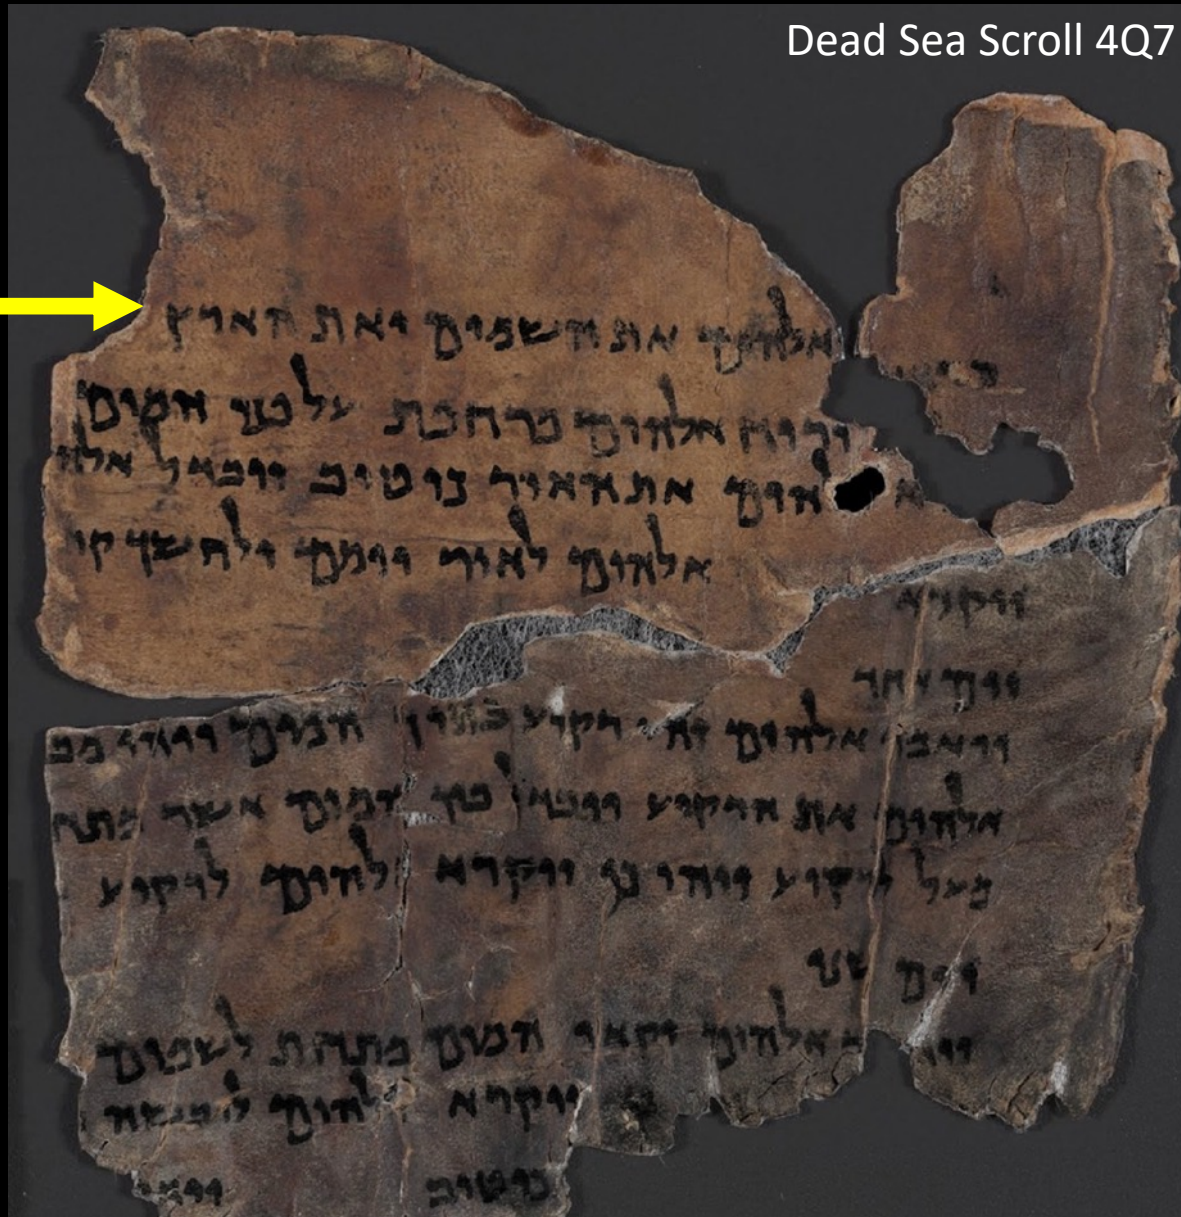 Dead Sea Scroll 4Q7
אלהים את השמים ואת הארץ
ורוח אלהים מרחפת על פני המים
אלהים את האור כי טוב ויבדל אלה
אלהים לאור יומם ולחשך קר
ויקרא
יום אחד
ויאמר אלהים יהי רקיע בתוך המים ויהי מב
אלהים את הרקיע ויבדל בין המים אשר מתח
מעל לרקיע ויהי כן ויקרא אלהים לרקיע
יום שני
אלהים יקאו המים מתחת לשמים
ויקרא אלהים ליבשה
כי טוב